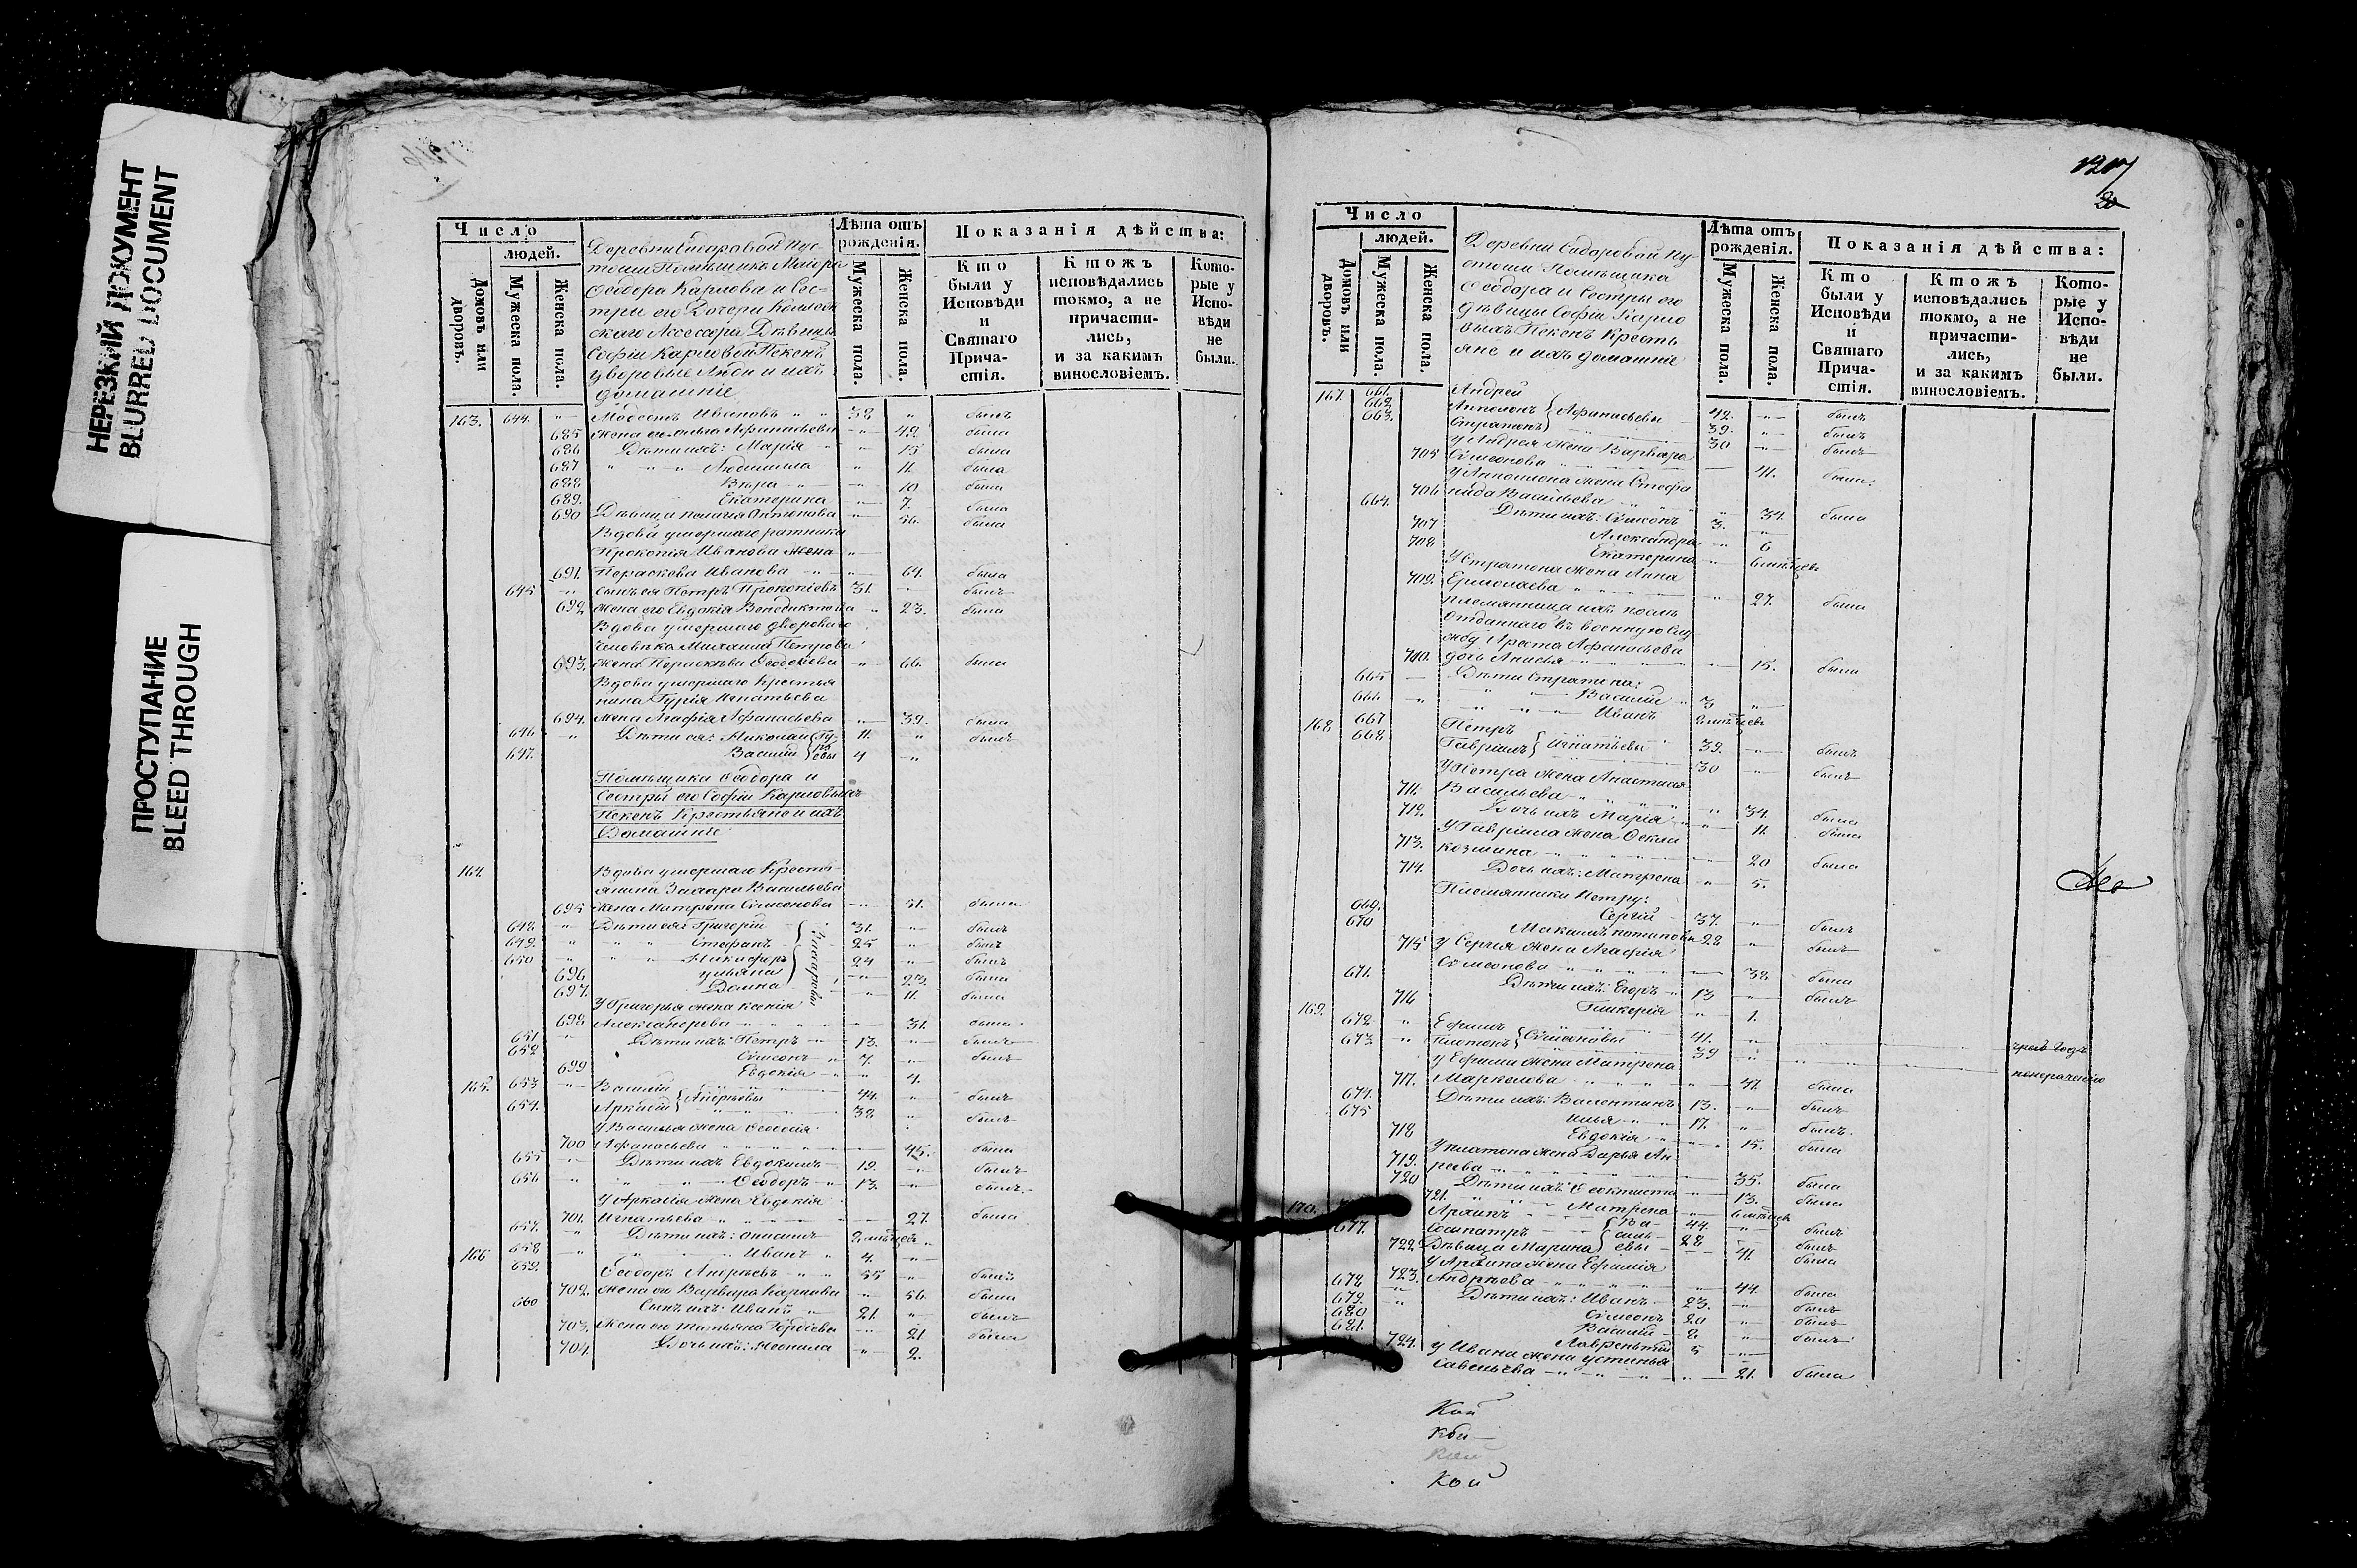 НЕРЕЗКИЙ ДОКУМЕНТ
BLURRED DOCUMENT
ПРОСТУПАНИЕ
BLEED THROUGH
Число
людей.
Домовъ или дворовъ.
Мужеска пола.
Женска пола.
Деревни Сидоровой Пус-
тоши Помѣщика Маіора
Ѳеодора Карлова и Сес-
тры его Дочери Коллеж-
скаго Ассесора Дѣвицы
Софіи Карловой Пекенъ
дворовые Люди и ихъ
домашніе
Лѣта отъ рожденія.
Мужеска пола.
Женска пола.
Показанія дѣйства:
Кто были у Исповѣди и Святаго Прича-стія.
Ктожъ исповѣдались токмо, а не причасти-лись, и за какимъ винословіемъ.
Кото-рые у Испо-вѣди не были.
163. 644. Модестъ Ивановъ 38 былъ
685 Жена его Ольга Афанасьева 42 была
686 Дѣти ихъ: Марія 15 была
687 Людмилла 11. была
688 Вѣра 10 была
689. Екатерина 7. была
690 Дѣвица Антонова 56. была
Вдова умершаго ратника
Прокопія Иванова Жена
691. Параскева Иванова 64. была
645 сынъ ея Петръ Прокопіевъ 31. былъ
692 Жена его Евдокія Венедиктова 23. была
Вдова умершаго двороваго
человѣка Михаила Петрова
693. Жена Параскѣва Ѳеодорова 66. была
Вдова умершаго Крестья
нина Гурія Игнатьева
694. Жена Агафія Афанасьева 39. была
646 Дѣти ея: Николай 11. былъ
647. Василій 4
Помѣщика Ѳеодора и
Сестры его Софіи Карловыхъ
Пекенъ Крестьяне и ихъ
Домашніе
164. Вдова умершаго Кресть
янина Захара Васильева
695 Жена Матрона Симеонова 51. была
648 Дѣти ея: Григорій 31. былъ
649. Стефанъ 25 былъ
650 Никифоръ 24 былъ
696 Ульяна 23. была
697. Домна 11. была
Захаровы
У Григорья жена Ксенія
698 Александрова 31. была
651 Дѣти ихъ: Петръ 13. былъ
652 Симеонъ 7. былъ
699 Евдокія 4.
165. 653 Василій Андрѣевы 44. былъ
654. 38 былъ
У Василья жена
700 Афанасьева 45. была
655 Дѣти ихъ Евдокимъ 19. былъ
656 Ѳеодоръ 13. былъ
жена Евдокія
701. Игнатьева 27. была
657. Дѣти ихъ:
658 Иванъ 4.
166 659. Ѳеодоръ Андрѣевъ 55 былъ
702. Жена его Варвара Карпова 56. была
660 Сынъ ихъ: Иванъ 21. былъ
703. Жена его Татьяна Гордіева 21 была
704. Дочь ихъ: Неонила 2.
1217
20
Число
людей.
Домовъ или дворовъ.
Мужеска пола.
Женска пола.
Деревни Сидоровой Пу-
стоши Помѣщика
Ѳеодора и Сестры его
дѣвицы Софіи Карло
выхъ Пекенъ Кресть
яне и ихъ домашніе
Лѣта отъ рожденія.
Мужеска пола.
Женска пола.
Показанія дѣйства:
Кто были у Исповѣди и Святаго Прича-стія.
Ктожъ исповѣдались токмо, а не причасти-лись, и за какимъ винословіемъ.
Кото-рые у Испо-вѣди не были.
167. 661. Андрей 42. былъ
662 Апполонъ Афанасьевы 39. былъ
663. Стратонъ 30 былъ
У Андрея Жена Варвара
705 Симеонова 41. была
У Апполона жена Стефа
706 нида Васильева 34. была
664. Дѣти ихъ: Симеонъ 3.
707 Александра 6
708 Екатерина
У Стратона жена Анна
709. Ермолаева 27. была
племянница ихъ
отданнаго въ военную слу
жбу Ареста Афанасьева
710. дочь Анисья 15. была
665 Дѣти Стратона:
666 Василій 3
Иванъ
168 667 Петръ Игнатьевы 39. былъ
668 Гавріилъ 30 былъ
У Петра жена Анастасія
711. Васильева 34. была
712. Дочь ихъ Марія 11. была
У Гавріила жена Ѳекла
713. Козмина 20 была
714. Дочь ихъ: Матрена 5.
Племянники Петру:
669. Сергій 37. былъ
670 28 былъ
715 У Сергія жена Агафія
Симеонова 38 была
671. Дѣти ихъ: Егоръ 13 былъ
716 Гликерія 1.
169. 672 Ефимъ Симеоновы 41.
673 Платонъ 39
У Ефима жена Матрена
717. Маркелова 41. была
674. Дѣти ихъ: Валентинъ 13. былъ
675 Илья 17. былъ
718 Евдокія 15. была
У Платона жена Дарья Ан
719. реева 35. была
720 Дѣти ихъ Ѳеоктиста 13. была
721. Матрена
170. Архипъ 44. былъ
677. Сосипатръ 28 былъ
722. Дѣвица Марина 41. была
Ва-
силь-
евы
У Архипа жена Ефимія
723. Андрѣева 44. была
678 Дѣти ихъ: Иванъ 23. былъ
679. Симеонъ 20 былъ
680 Василій 8 былъ
681. Лаврентій 5
724. У Ивана жена Устинья
Савельева 21. была
Кой
Кой